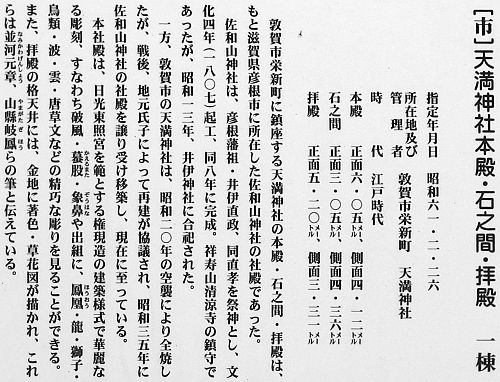 ［市］天満神社本殿・石之間・拝殿　一棟
指定年月日　昭和六一・二・二六
所在地及び
管理者　敦賀市栄新町　天満神社
時　　代　江戸時代
本殿　正面六・〇五メートル、側面四・一二メートル
石之間　正面三・〇五メートル、側面四・三六メートル
拝殿　正面五・二〇メートル、側面三・三一メートル
敦賀市栄新町に鎮座する天満神社の本殿・石之間・拝殿は、
もと滋賀県彦根市に所在した佐和山神社の社殿であった。
佐和山神社は、彦根藩祖・井伊直政、同直孝を祭神とし、文
化四年（一八〇七）起工、同八年に完成。祥寿山清涼寺の鎮守で
あったが、昭和一三年、井伊神社に合祀された。
一方、敦賀市の天満神社は、昭和二〇年の空襲により全焼し
たが、戦後、地元氏子によって再建が協議され、昭和三五年に
佐和山神社の社殿を譲り受け移築し、現在に至っている。
本社殿は、日光東照宮を範とする権現造の建築様式で華麗な
る彫刻、すなわち破風・蟇股・象鼻や出組に、鳳凰・龍・獅子・
鳥類・波・雲・唐草文などの精巧な彫りを見ることができる。
また、拝殿の格天井には、金地に著色・草花図が描かれ、これ
らは並河元章、山縣岐鳳らの筆と伝えている。